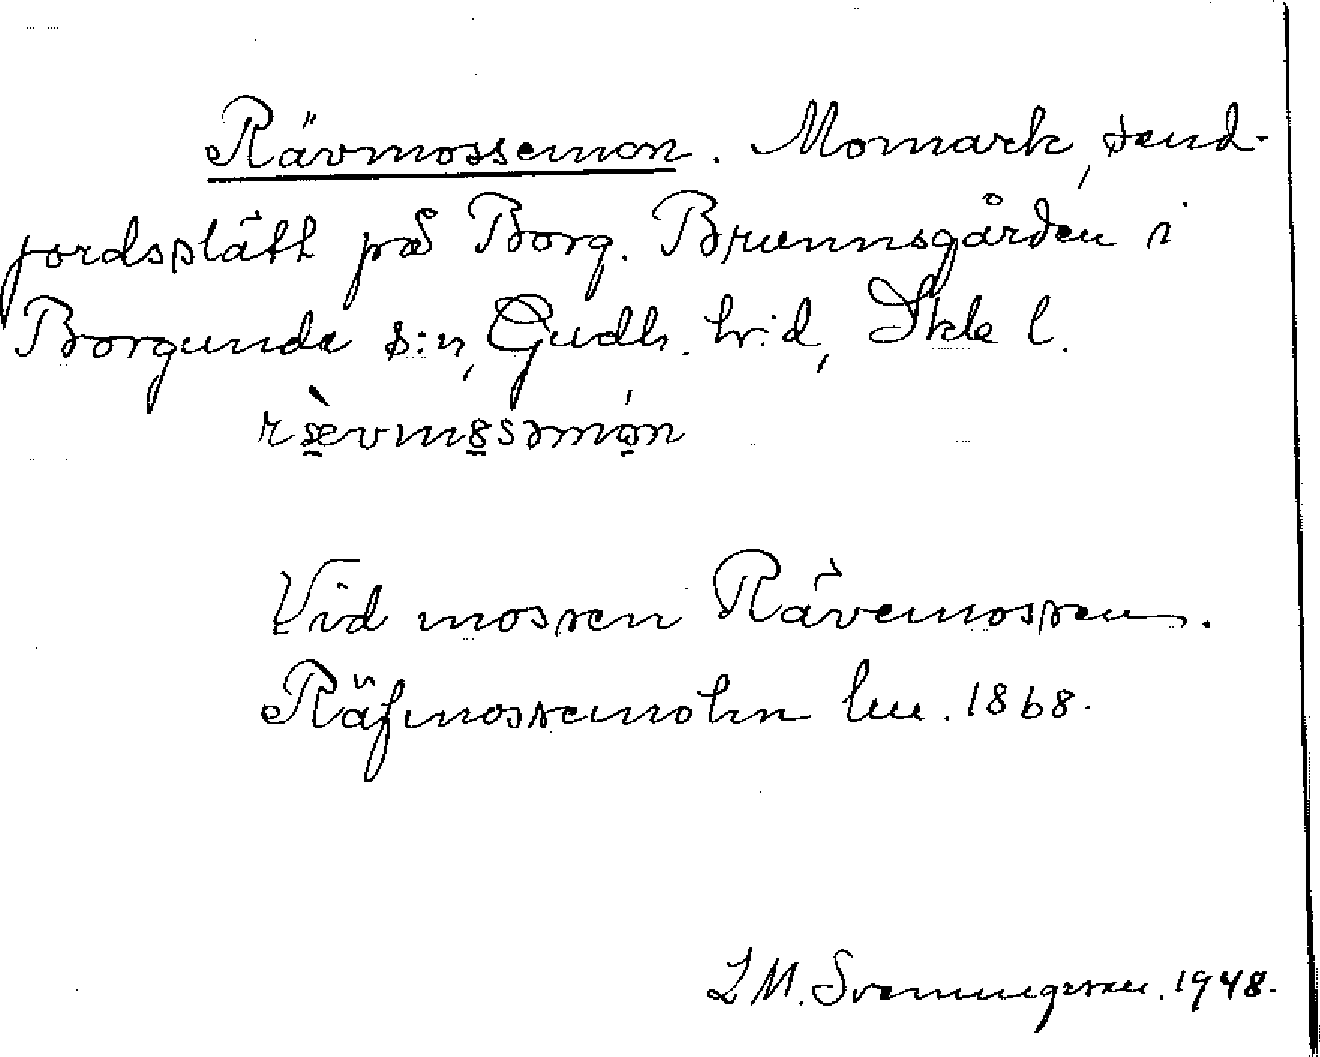 Rävmossemon. Momark, sand-
jordsplätt på Borg. Brunnsgården i
Borgunda s:n, Gudh. hrd, Skbl l.
rævmɷsəmon
Vid mossen Rävemossen.
Räfmossemohn lm. 1868.
L M. Svanungsson. 1948.